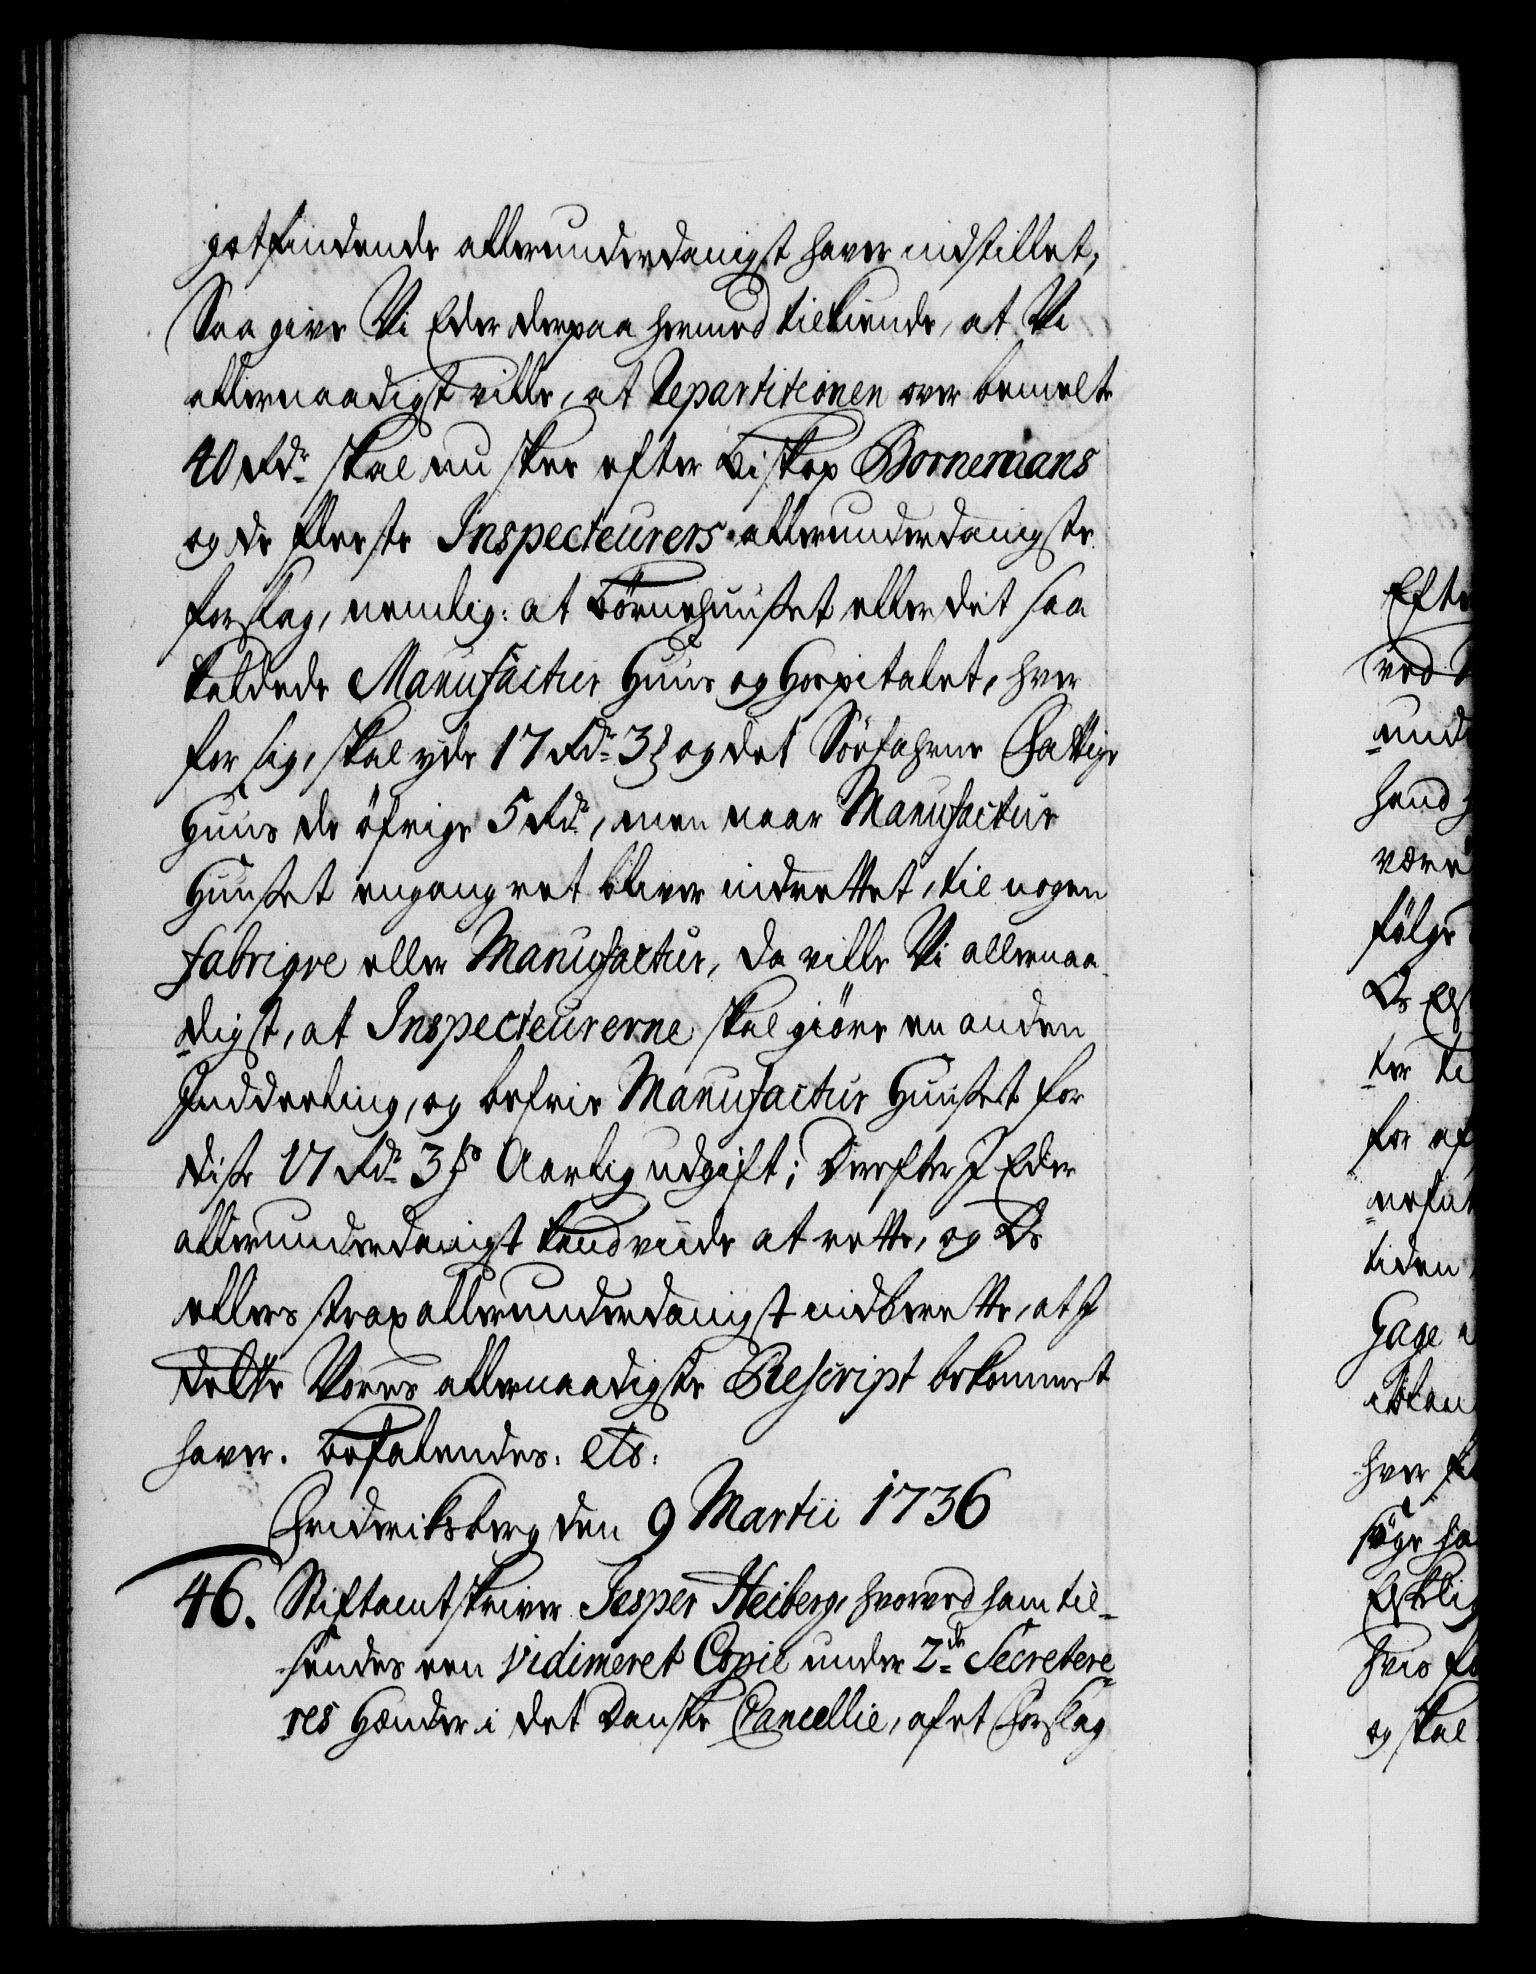 gotfindende allerunderdanigst haver indstillet,
Saa give Vi Eder derpaa hermed tilkiende, at Vi
allernaadigst ville, at Repartitionen over bemelte
40 Rdr skal nu skee efter Biskop Bornemans
og de fleeste Inspecteurers allerunderdanigste
forslag, nemlig: at Börnehuuset eller det saa
kaldede Manufactur Huus og Hospitalet, hver
for sig, skal yde 17 Rdr 3 og det Söefahrne Fattige
Huus de öfrige 5 Rdr, men naar Manufactur
Huuset engang ret bliver indrettet, til nogen
fabriqve eller Manufactur, da ville Vi allernaa-
digst, at Inspecteurerne skal giöre en anden
Inddeeling, og befrie Manufactur Huuset for
disse 17 Rdr 3 Aarlig udgift; Derefter I Eder
allerunderdanigst kand viide at rette, og Os
ellers strax allerunderdanigst indberette, at I
dette Vores allernaadigste Rescript bekommet
haver. Befalendes: etc:
Frideriksberg den 9 Martii 1736
46. Stiftamtskriver Jesper Heiberg, hvorved ham til-
sendes een vidimeret Copie under 2de Secretere-
res Hænder i det danske Cancellie, af et Forslag
Efte
ved
und
hand
være
fölge
Os
ter ti
for af
tiden
Gage
hver
söge ha
hvis
og skal